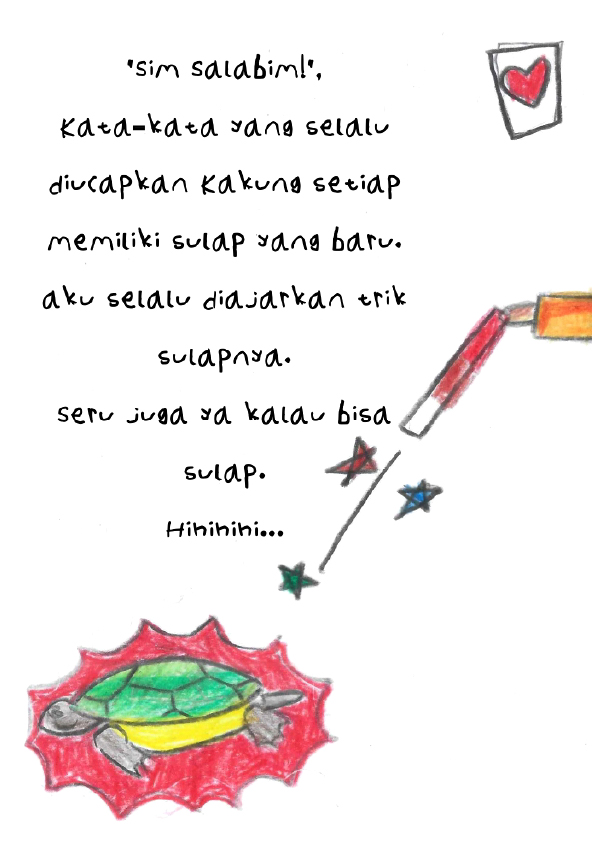 "Sim salabim!",
Kata-kata yang selalu
diucapkan Kakung setiap
memiliki sulap yang baru.
aku selalu diajarkan trik
sulapnya.
seru juga ya kalau bisa
sulap.
Hihihihi...